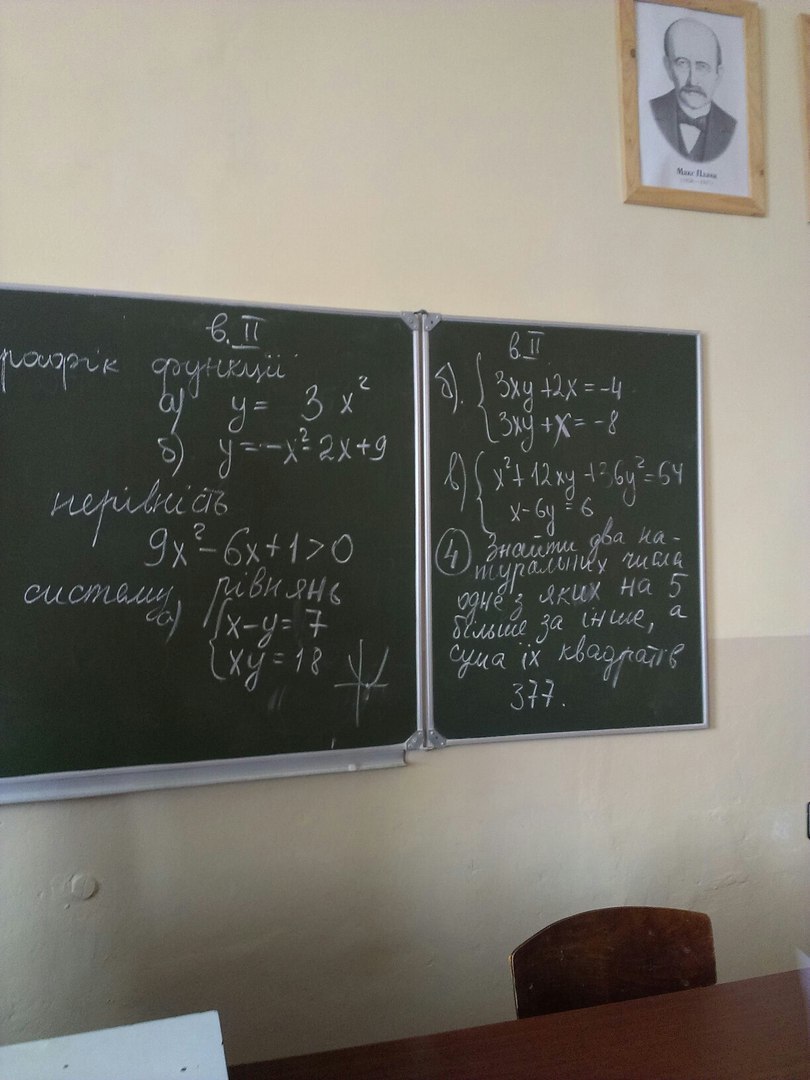 Макс Планк
в. II
рафік функції
а) y = 3 x²
б) y = -x² - 2x + 9
нерівність
9x² - 6x + 1 > 0
систему рівнянь
а) { x - y = 7
xy = 18
в. II
б). { 3xy + 2x = -4
3xy + x = -8
в) { x² + 12xy + 36y² = 64
x - 6y = 6
④ Знайти два на-
туральних числа
одне з яких на 5
більше за інше, а
сума їх квадратів
377.